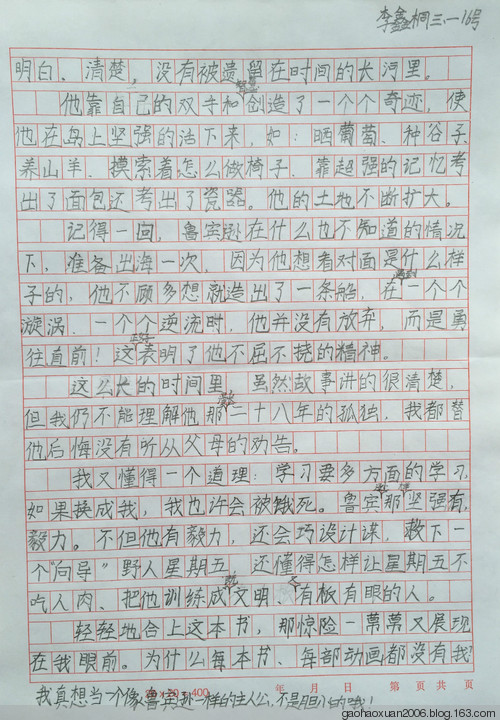 李鑫桐三.一16号
明白、清楚。没有被遗留在时间的长河里。
他靠自己的双手和智慧创造了一个个奇迹，使
他在岛上坚强的活下来，如：晒葡萄、种谷子、
养山羊、摸索着怎么做椅子、靠超强的记忆考
出了面包还考出了瓷器。他的土地不断扩大。
记得一回，鲁宾逊在什么也不知道的情况
下，准备出海一次，因为他想看对面是什么样
子的，他不顾多想就造出了一条船，在遇到一个个
漩涡、一个个逆流时，他并没有放弃，而是勇
往直前！这表明了他不屈不挠的精神。
这么长的时间里，虽然故事讲的很清楚，
但我们不能理解他那二十八年的孤独，我都替
他后悔没有听从父母的劝告。
我又懂得一个道理：学习要多方面的学习，
如果换成我，我也许会被饿死。鲁宾那坚强有
毅力。不但他有毅力，还会巧设计谋，救下一
个"向导"野人星期五，还懂得怎样让星期五不
吃人肉、把他训练成文明、有板有眼的人。
轻轻地合上这本书，那惊险一幕幕又展现
在我眼前。为什么每本书、每部动画都没有我？
20×20=400 年 月 日 第 页 共 页
我真想当一个像鲁宾逊一样的主人公，不是胆小的我！
gaohaoxuan2006.blog.163.com